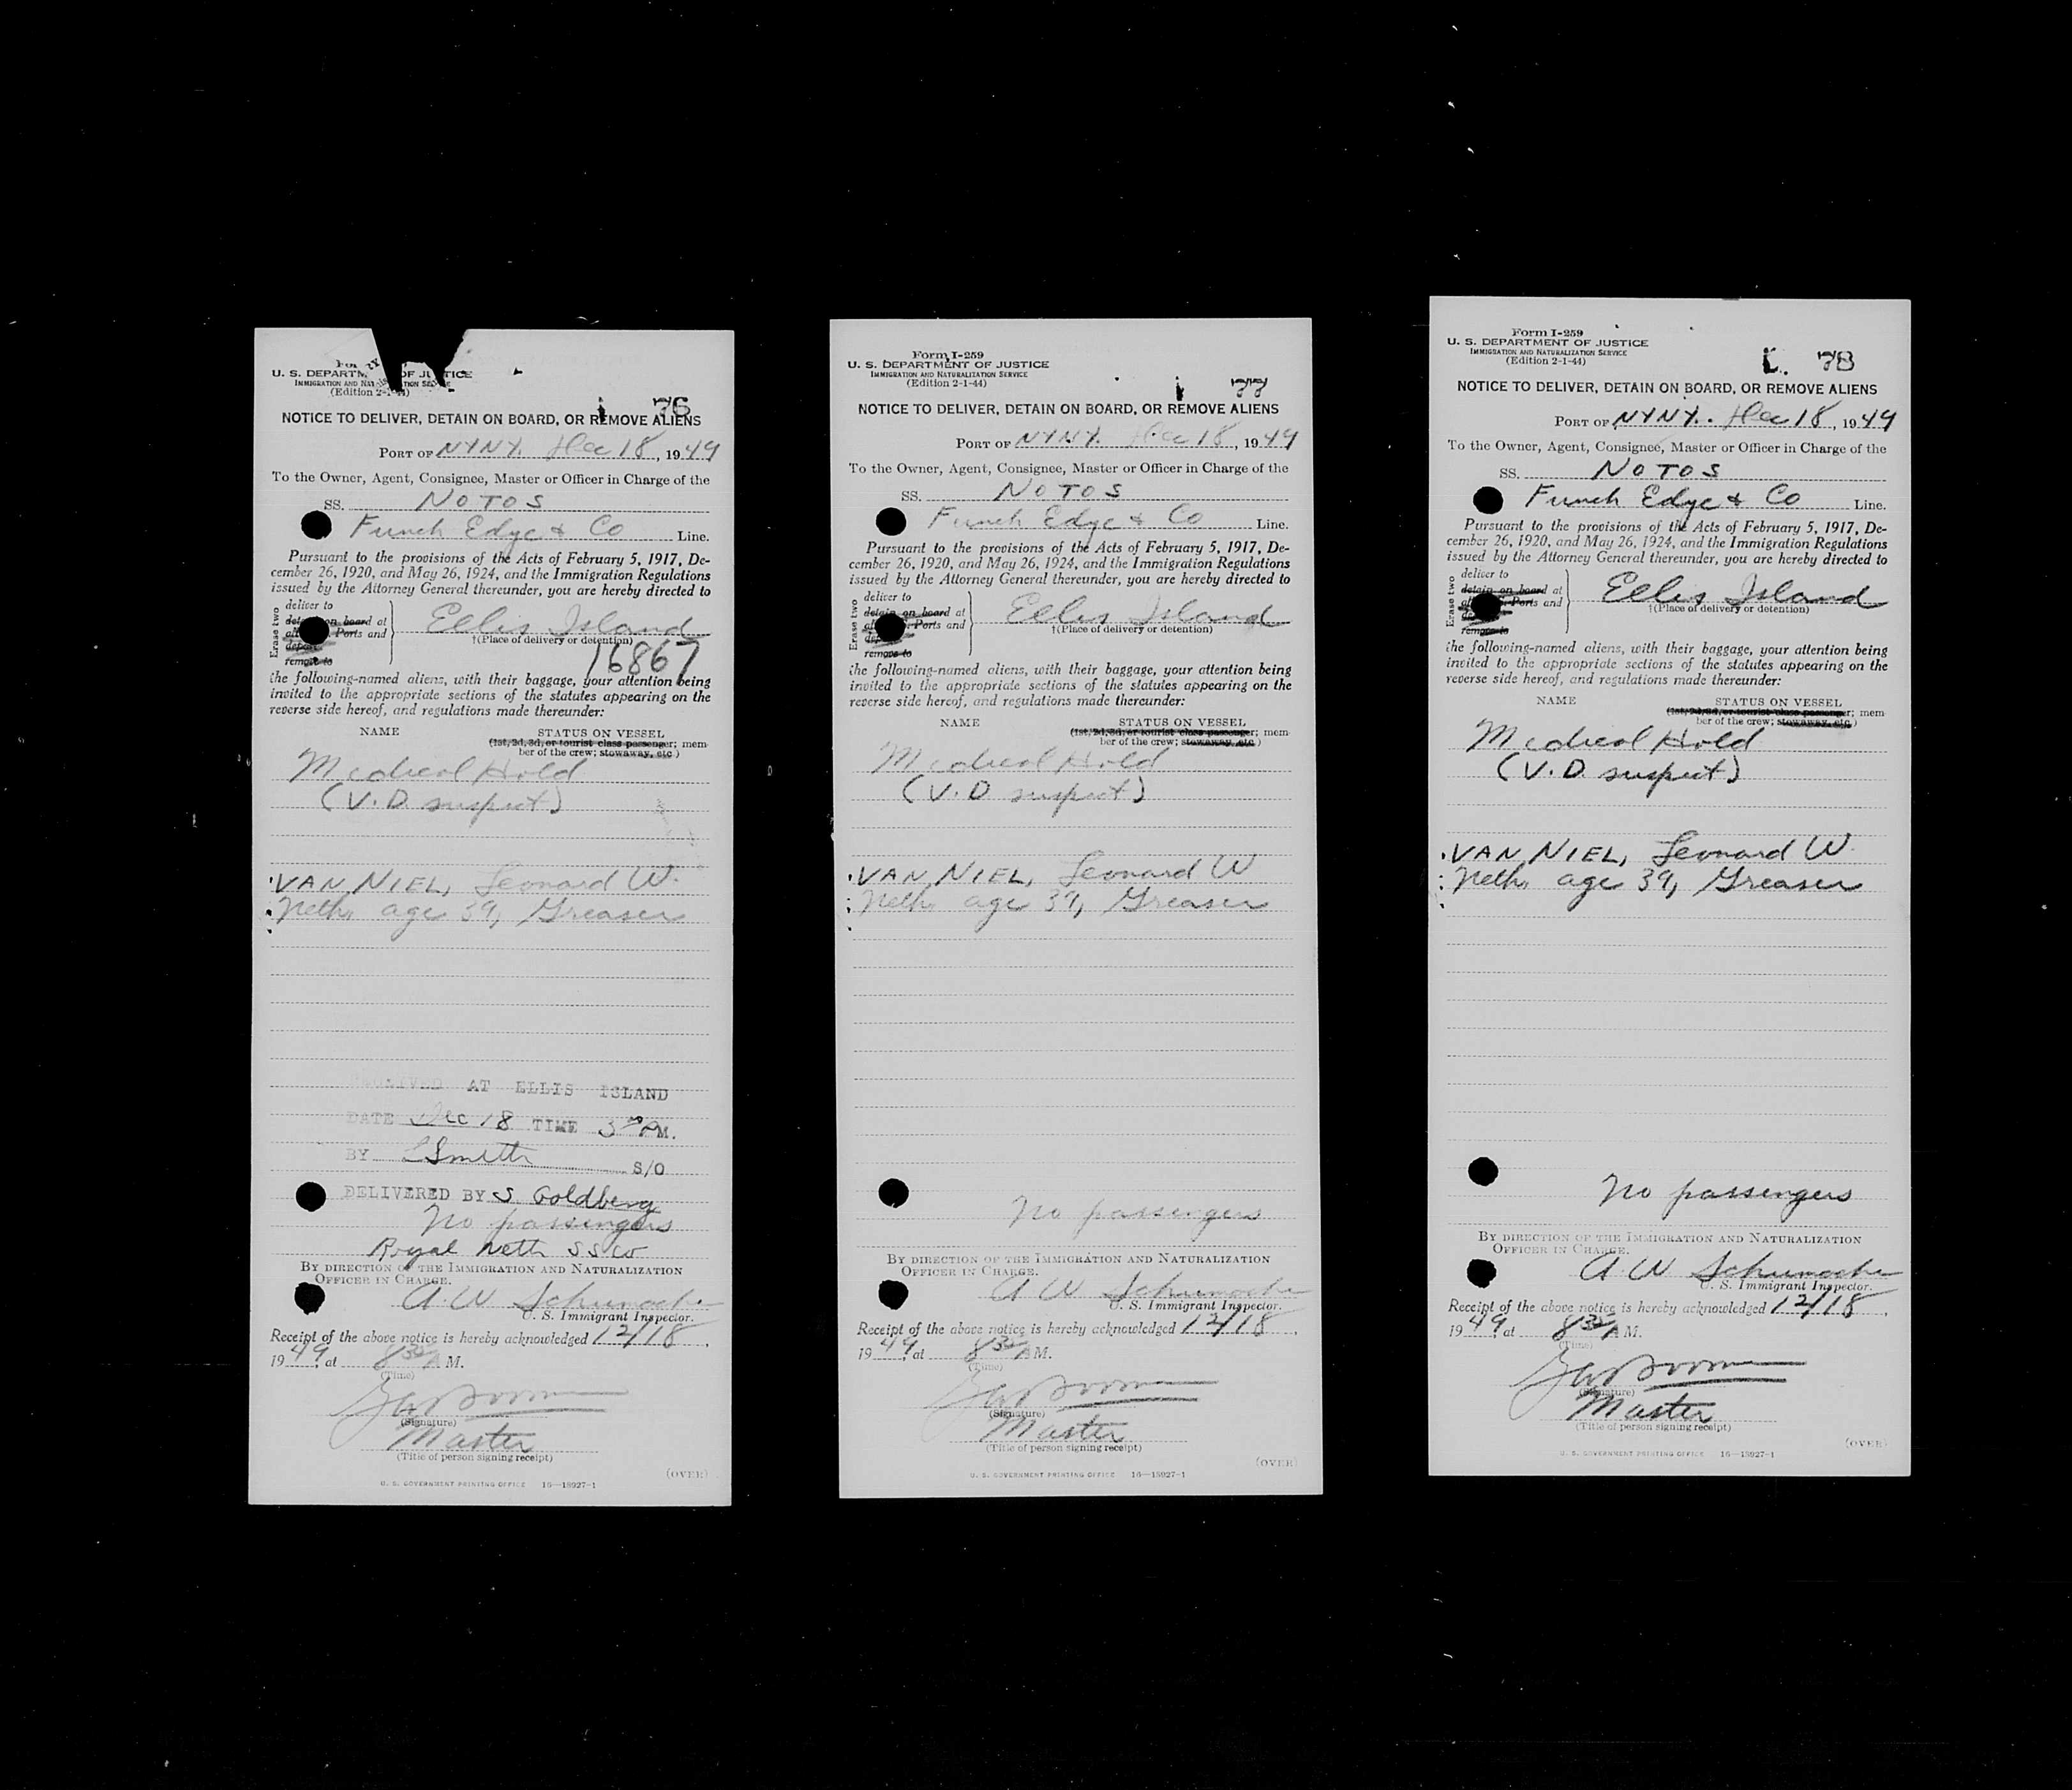 For
U. S. DEPARTM OF JUSTICE
IMMIGRATION AND NAT TION SE CE
(Edition 2-1-44)
76
NOTICE TO DELIVER, DETAIN ON BOARD, OR REMOVE ALIENS
PORT OF NYNY. Dec 18, 1949
To the Owner, Agent, Consignee, Master or Officer in Charge of the
SS. NOTOS
Funch Edye & Co Line.
Pursuant to the provisions of the Acts of February 5, 1917, De-
cember 26, 1920, and May 26, 1924, and the Immigration Regulations
issued by the Attorney General thereunder, you are hereby directed to
Erase two
deliver to
detain on board at
all Ports and
depor
remove to
Ellis Island
†(Place of delivery or detention)
16867
the following-named aliens, with their baggage, your attention being
invited to the appropriate sections of the statutes appearing on the
reverse side hereof, and regulations made thereunder:
NAME STATUS ON VESSEL
(1st, 2d, 3d, or tourist class passenger; mem-
ber of the crew; stowaway, etc.)
Medical Hold
(V.D. suspect)
VAN NIEL, Leonard W.
Neth, age 39, Greaser
RECEIVED AT ELLIS ISLAND
DATE Dec 18 TIME 3 00 PM.
BY LSmith S/O
DELIVERED BY S Goldberg
No passengers
Royal Neth SS Co
BY DIRECTION OF THE IMMIGRATION AND NATURALIZATION
OFFICER IN CHARGE.
A W Schumacher
U. S. Immigrant Inspector.
Receipt of the above notice is hereby acknowledged 12/18,
1949, at 8 35 A M.
(Time)
(Signature)
Master
(Title of person signing receipt)
(OVER)
U. S. GOVERNMENT PRINTING OFFICE 16—18927-1
Form I-259
U. S. DEPARTMENT OF JUSTICE
IMMIGRATION AND NATURALIZATION SERVICE
(Edition 2-1-44)
77
NOTICE TO DELIVER, DETAIN ON BOARD, OR REMOVE ALIENS
PORT OF NYNY. Dec 18, 1949
To the Owner, Agent, Consignee, Master or Officer in Charge of the
SS. NOTOS
Funch Edye & Co Line.
Pursuant to the provisions of the Acts of February 5, 1917, De-
cember 26, 1920, and May 26, 1924, and the Immigration Regulations
issued by the Attorney General thereunder, you are hereby directed to
Erase two
deliver to
detain on board at
all Ports and
depor
remove to
Ellis Island
†(Place of delivery or detention)
the following-named aliens, with their baggage, your attention being
invited to the appropriate sections of the statutes appearing on the
reverse side hereof, and regulations made thereunder:
NAME STATUS ON VESSEL
(1st, 2d, 3d, or tourist class passenger; mem-
ber of the crew; stowaway, etc.)
Medical Hold
(V.D suspect)
VAN NIEL, Leonard W
Neth, age 39, Greaser
No passengers
BY DIRECTION OF THE IMMIGRATION AND NATURALIZATION
OFFICER IN CHARGE.
A W Schumacher
U. S. Immigrant Inspector.
Receipt of the above notice is hereby acknowledged 12/18,
1949, at 8 35 A M.
(Time)
(Signature)
Master
(Title of person signing receipt)
(OVER)
U. S. GOVERNMENT PRINTING OFFICE 16—18927-1
Form I-259
U. S. DEPARTMENT OF JUSTICE
IMMIGRATION AND NATURALIZATION SERVICE
(Edition 2-1-44)
78
NOTICE TO DELIVER, DETAIN ON BOARD, OR REMOVE ALIENS
PORT OF NYNY. Dec 18, 1949
To the Owner, Agent, Consignee, Master or Officer in Charge of the
SS. NOTOS
Funch Edye & Co Line.
Pursuant to the provisions of the Acts of February 5, 1917, De-
cember 26, 1920, and May 26, 1924, and the Immigration Regulations
issued by the Attorney General thereunder, you are hereby directed to
Erase two
deliver to
detain on board at
all Ports and
remove to
Ellis Island
†(Place of delivery or detention)
the following-named aliens, with their baggage, your attention being
invited to the appropriate sections of the statutes appearing on the
reverse side hereof, and regulations made thereunder:
NAME STATUS ON VESSEL
(1st, 2d, 3d, or tourist class passenger; mem-
ber of the crew; stowaway, etc.)
Medical Hold
(V.D. suspect)
VAN NIEL, Leonard W.
Neth, age 39, Greaser
No passengers
BY DIRECTION OF THE IMMIGRATION AND NATURALIZATION
OFFICER IN CHARGE.
A. W Schumacher
U. S. Immigrant Inspector.
Receipt of the above notice is hereby acknowledged 12/18,
1949, at 8 35 A M.
(Time)
(Signature)
Master
(Title of person signing receipt)
(OVER)
U. S. GOVERNMENT PRINTING OFFICE 16—18927-1